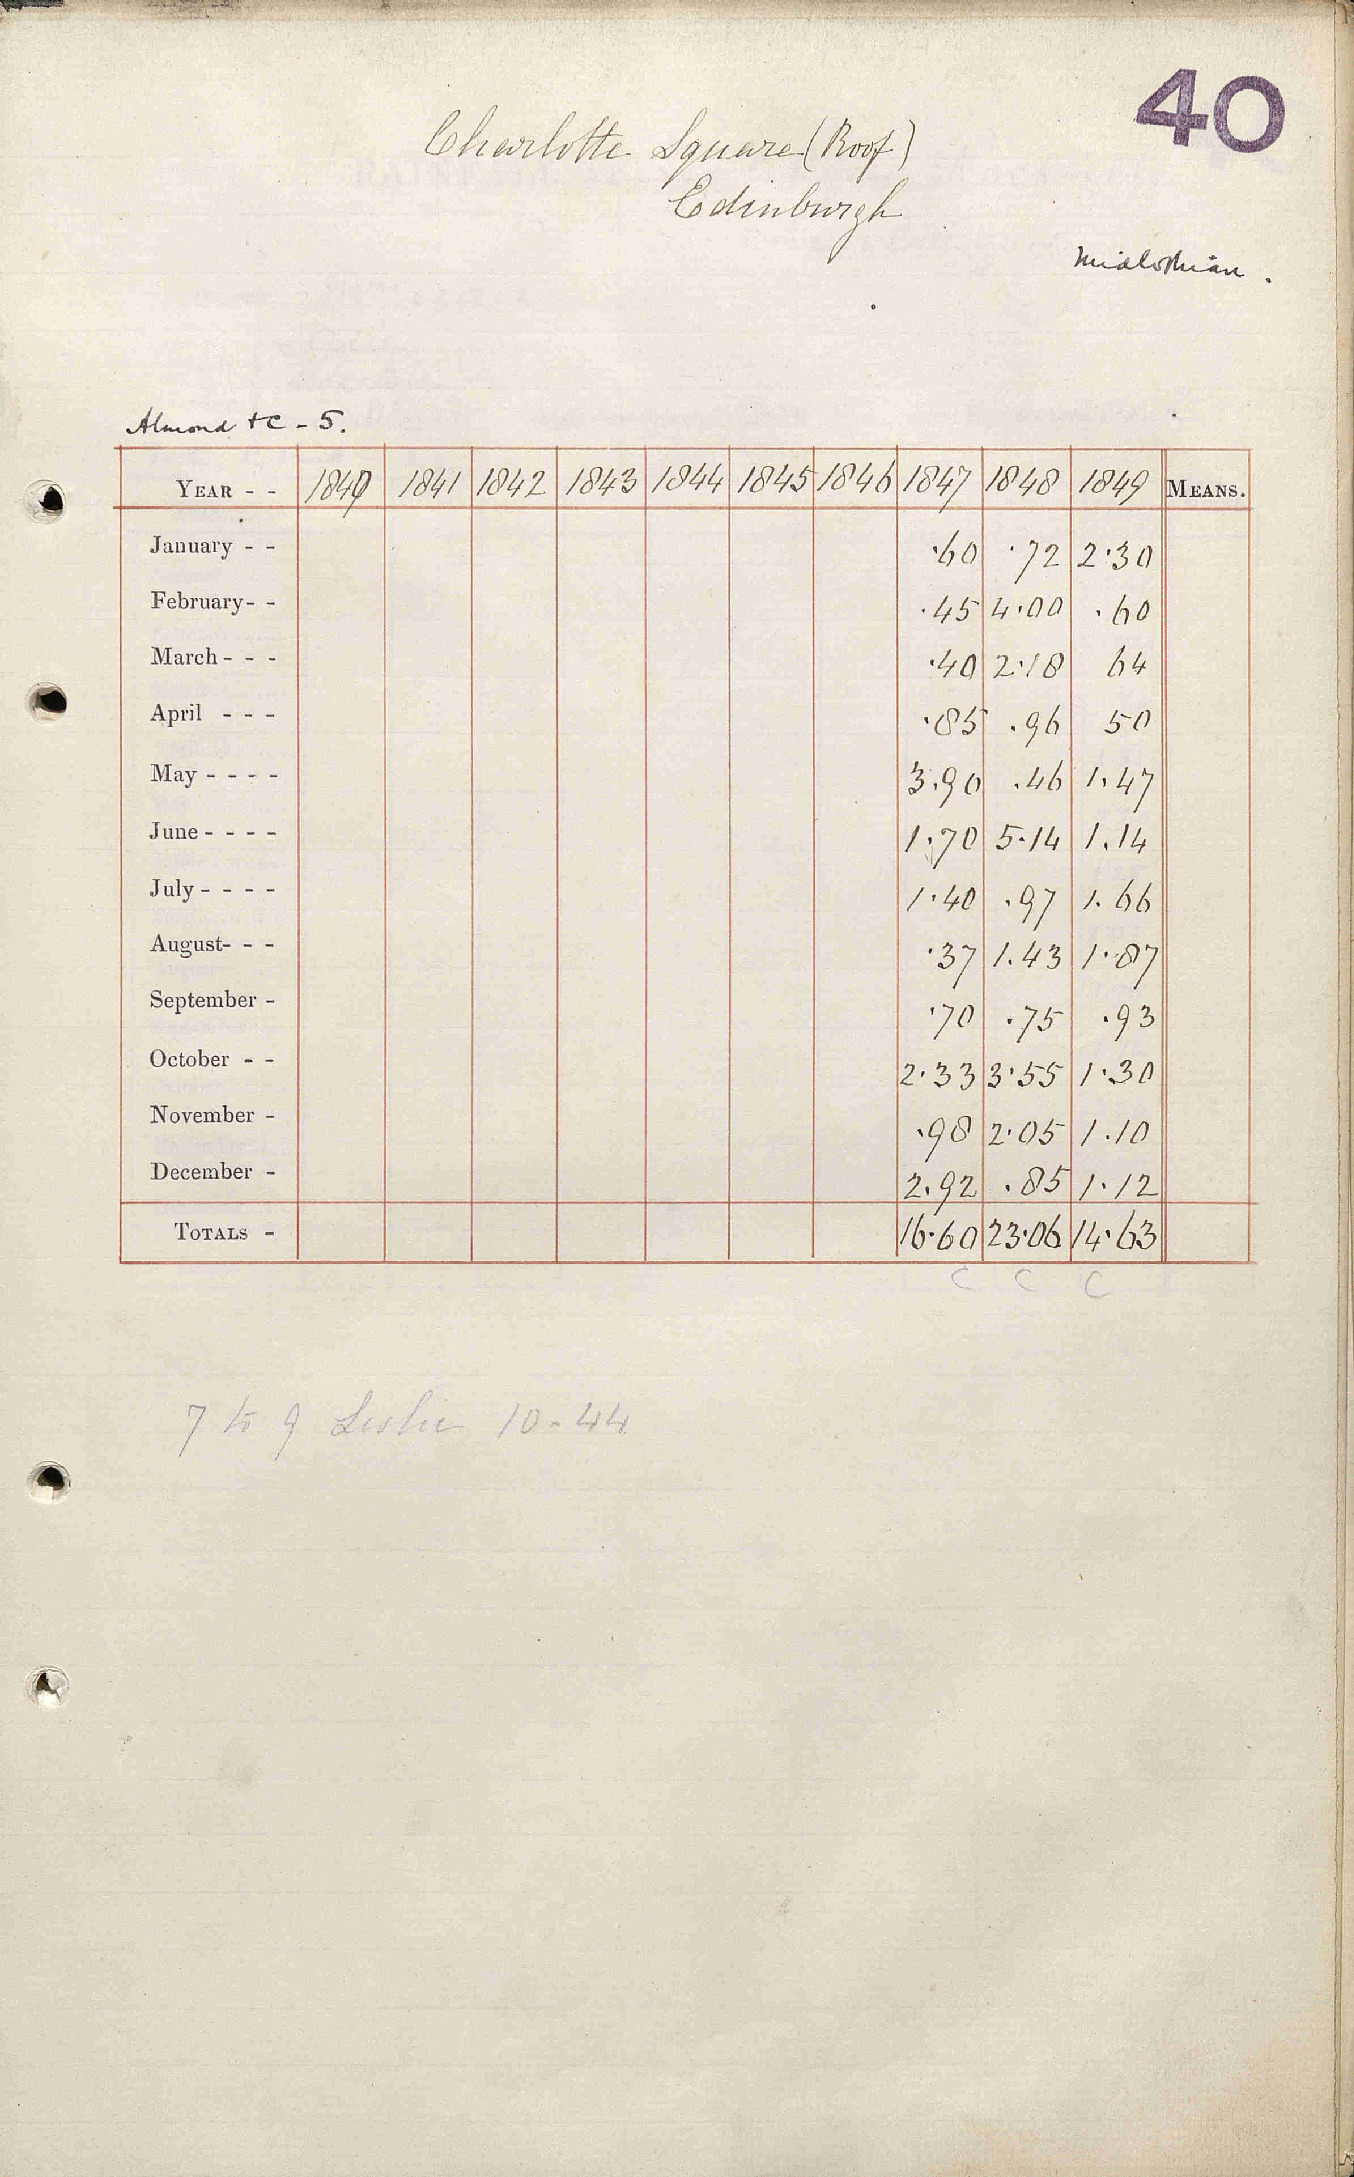 40
Charlotte Square (Roof)
Edinburgh
Midlothian.
Almond &c - 5.
YEAR - - 1840 1841 1842 1843 1844 1845 1846 1847 1848 1849 MEANS.
January - - ·60 ·72 2·30
February- - ·45 4·00 ·60
March- - - ·40 2·18 64
April - - - ·85 ·96 50
May - - - - 3·90 ·46 1·47
June - - - - 1·70 5·14 1·14
July - - - - 1·40 ·97 1·66
August- - - ·37 1·43 1·87
September - ·70 ·75 ·93
October - - 2·33 3·55 1·30
November - ·98 2·05 1·10
December - 2·92 ·85 1·12
TOTALS - 16·60 23·06 14·63
C C C
7 to 9 Leslie 10-44